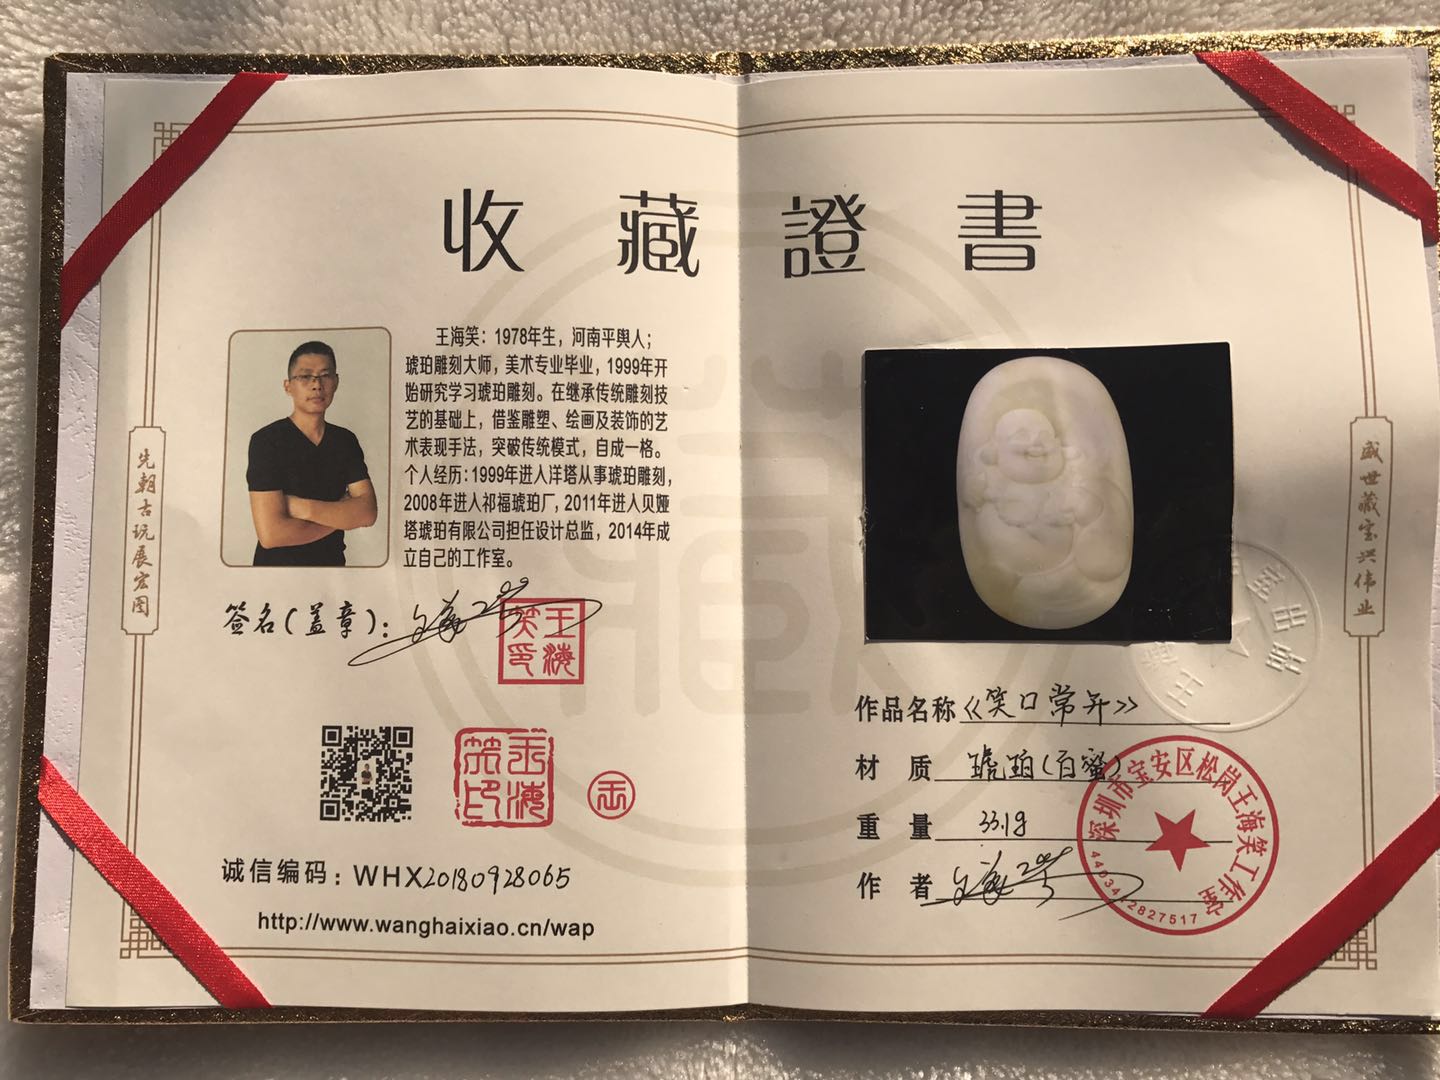 收藏證書
王海笑：1978年生，河南平舆人；
琥珀雕刻大师，美术专业毕业，1999年开
始研究学习琥珀雕刻。在继承传统雕刻技
艺的基础上，借鉴雕塑、绘画及装饰的艺
术表现手法，突破传统模式，自成一格。
个人经历：1999年进入洋塔从事琥珀雕刻，
2008年进入祁福琥珀厂，2011年进入贝娅
塔琥珀有限公司担任设计总监，2014年成
立自己的工作室。
签名（盖章）：王海笑
王海笑印
王海笑印
王
诚信编码：WHX20180928065
http://www.wanghaixiao.cn/wap
先朝古玩展宏图
作品名称《笑口常开》
材质 琥珀(白蜜)
重量 33.1g
作者 王海笑
深圳市宝安区松岗王海笑工作室
4403412827517
盛世藏宝兴伟业